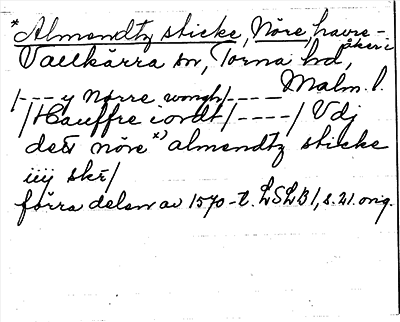 * Almendtz sticke, Nöre, havre-
åker i
Vallkärra sn, Torna hd,
Malm. l.
/---y Nørre wongh/----
/Hauffre iordt/----/ Vdj
dett nöre *) almendtz sticke
iiij skr/
förra delen av 1570-t. LSLB1, s. 21. orig.